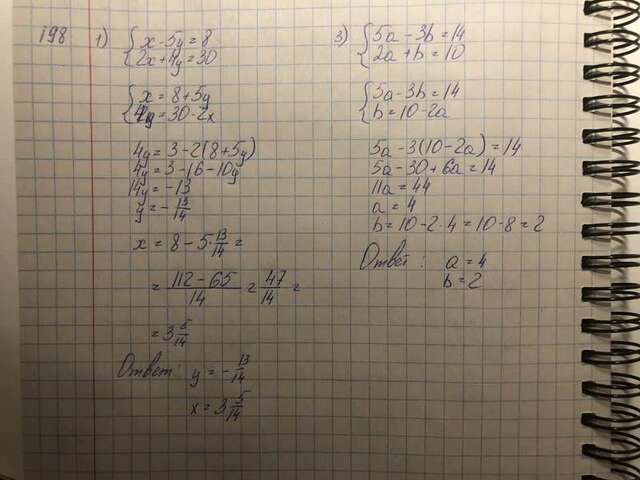 198
1) { x - 5y = 8
2x + 4y = 30
{ x = 8 + 5y
4y = 30 - 2x
4y = 3 - 2(8 + 5y)
4y = 3 - 16 - 10y
14y = -13
y = -13/14
x = 8 - 5 13/14 =
= (112 - 65)/14 = 47/14 =
= 3 5/14
Ответ: y = -13/14
x = 3 5/14
3) { 5a - 3b = 14
2a + b = 10
{ 5a - 3b = 14
b = 10 - 2a
5a - 3(10 - 2a) = 14
5a - 30 + 6a = 14
11a = 44
a = 4
b = 10 - 2·4 = 10 - 8 = 2
Ответ: a = 4
b = 2